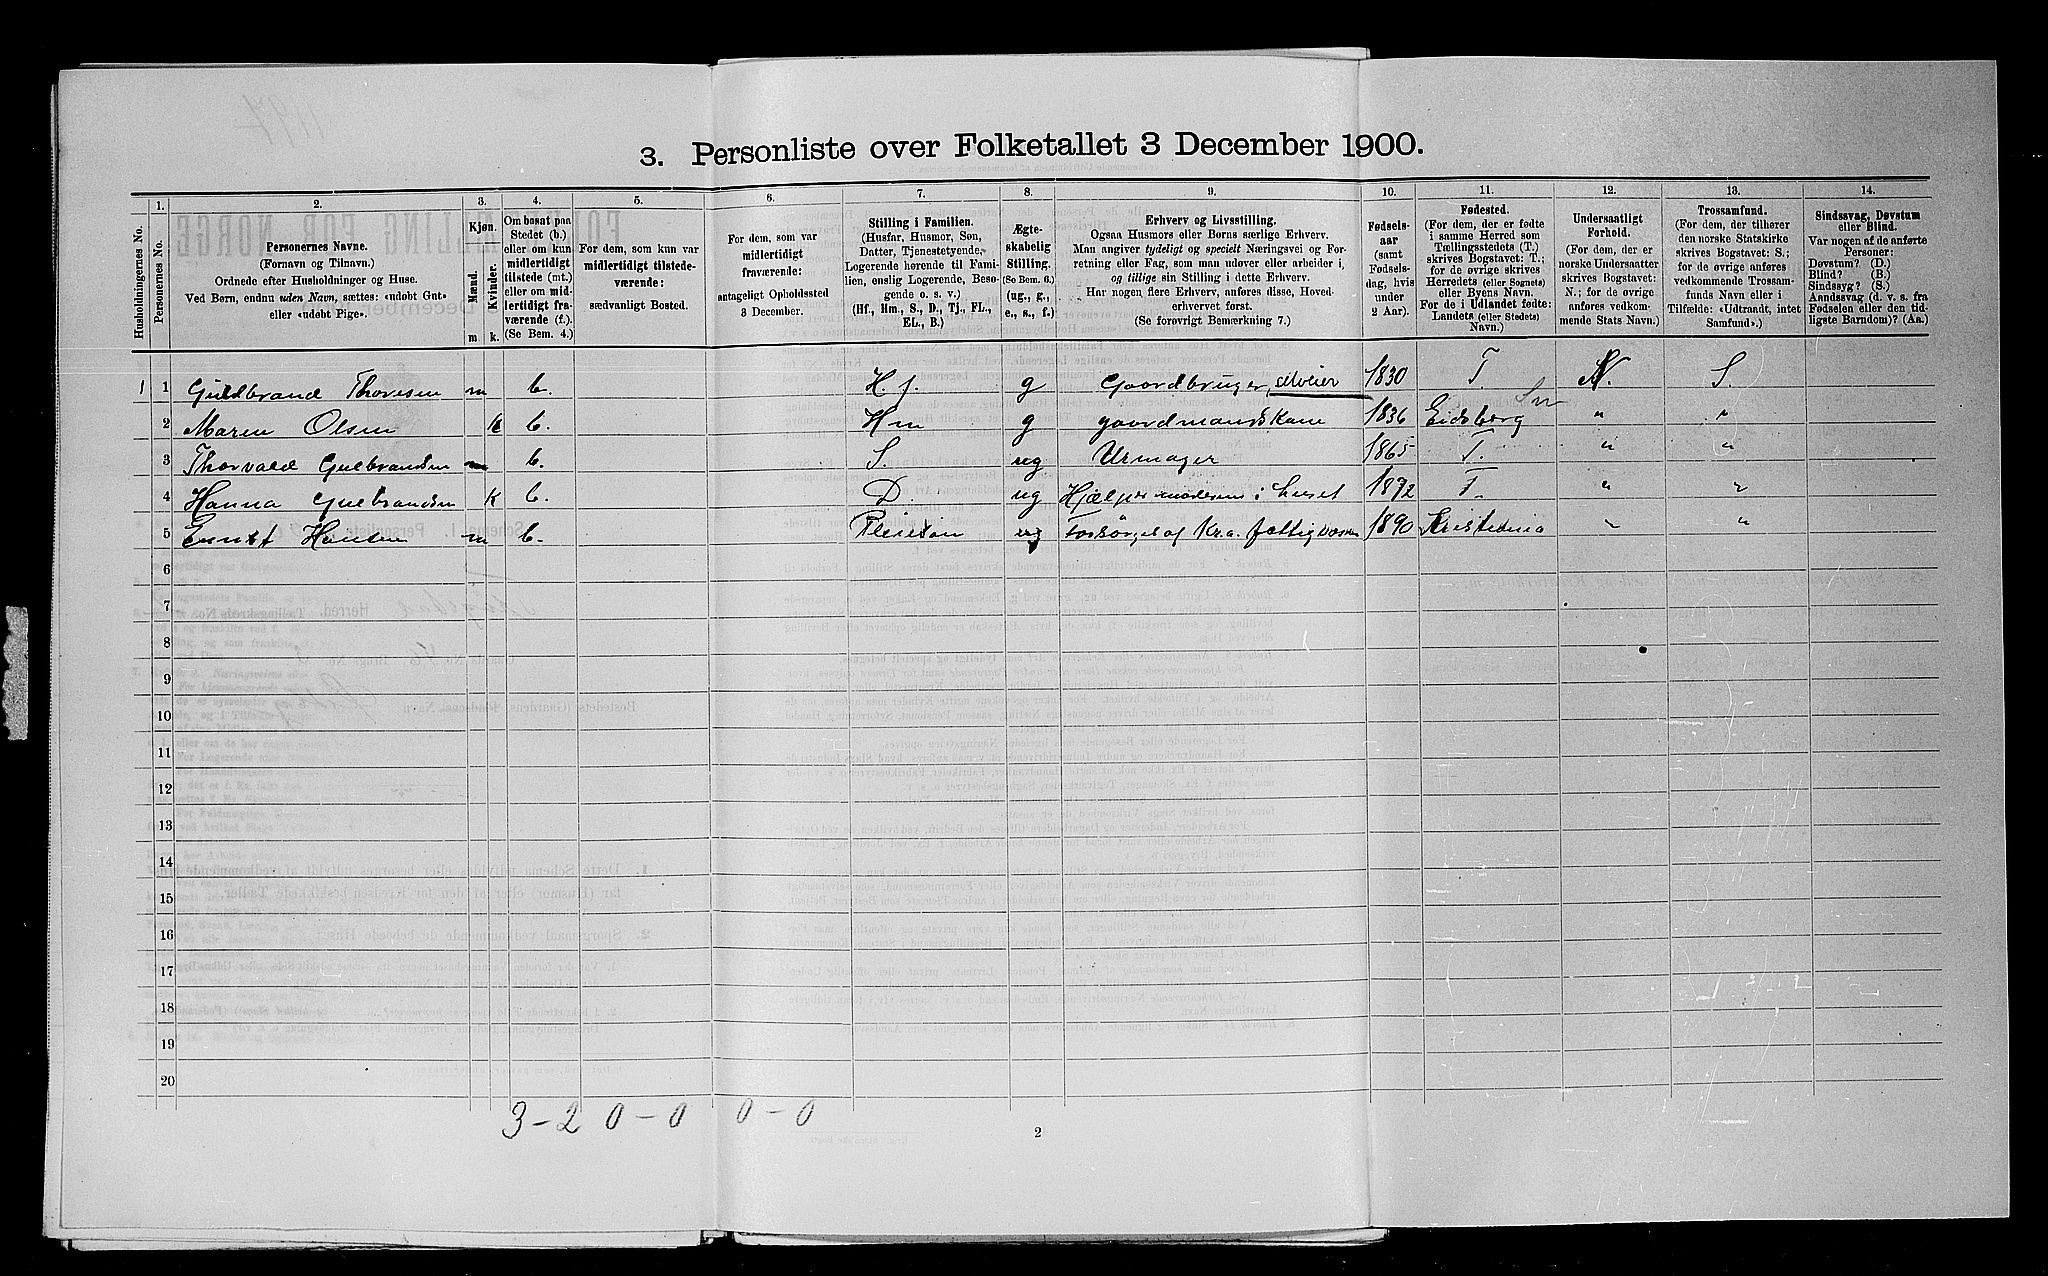 3. Personliste over Folketallet 3 December 1900.
1. 2. 3. 4. 5. 6. 7. 8. 9. 10. 11. 12. 13. 14.
Husholdningernes No.
Personernes No.
Personernes Navne.
(Fornavn og Tilnavn.)
Ordnede efter Husholdninger og Huse.
Ved Børn, endnu uden Navn, sættes: «udøbt Gut»
eller «udøbt Pige».
Kjøn.
Mænd.
Kvinder.
m k.
Om bosat paa
Stedet (b.)
eller om kun
midlertidigt
tilstede (mt.)
eller om mid-
lertidigt fra-
værende (f.).
(Se Bem. 4.)
For dem, som kun var
midlertidigt tilstede-
værende:
sædvanligt Bosted.
For dem, som var
midlertidigt
fraværende:
antageligt Opholdssted
3 December.
Stilling i Familien.
(Husfar, Husmor, Søn,
Datter, Tjenestetyende,
Logerende hørende til Fami-
lien, enslig Logerende, Besø-
gende o. s. v.)
(Hf., Hm., S., D., Tj., FL.,
EL., B.)
Ægte-
skabelig
Stilling.
(Se Bem. 6.)
(ug., g.,
e., s., f.)
Erhverv og Livsstilling.
Ogsaa Husmors eller Børns særlige Erhverv.
Man angiver tydeligt og specielt Næringsvei og For-
retning eller Fag, som man udøver eller arbeider i,
og tillige sin Stilling i dette Erhverv.
Har nogen flere Erhverv, anføres disse, Hoved-
erhvervet først.
(Se forøvrigt Bemærkning 7.)
Fødsels-
aar
(samt
Fødsels-
dag, hvis
under
2 Aar).
Fødested.
(For dem, der er fødte
i samme Herred som
Tællingsstedets (T.)
skrives Bogstavet: T.;
for de øvrige skrives
Herredets (eller Sognets)
eller Byens Navn.
For de i Udlandet fødte:
Landets (eller Stedets)
Navn.)
Undersaatligt
Forhold.
(For dem, der er
norske Undersaatter
skrives Bogstavet:
N.; for de øvrige
anføres vedkom-
mende Stats Navn.)
Trossamfund.
(For dem, der tilhører
den norske Statskirke
skrives Bogstavet: S.;
for de øvrige anføres
vedkommende Trossam-
funds Navn eller i
Tilfælde: «Udtraadt, intet
Samfund».)
Sindssvag, Døvstum
eller Blind.
Var nogen af de anførte
Personer:
Døvstum? (D.)
Blind? (B.)
Sindssyg? (S.)
Aandssvag (d. v. s. fra
Fødselen eller den tid-
ligste Barndom)? (Aa.)
1 1 Guldbrand Thoresen m b. H.f. g Gaardbruger, selveier 1830 T. N. S.
2 Maren Olsen k b. Hm g gaardmandskone 1836 Eidsberg " "
3 Thorvald Gulbrandsen m b. S. ug Urmager 1865 T. " "
4 Hanna Gulbrandsen k b. D. ug Hjælper moderen i huset 1892 T. " "
5 Ernst Hansen m b. Pleiesøn ug Forsørges af Kr.a. fattigvæsen 1890 Kristiania " "
6
7
8
9
10
11
12
13
14
15
16
17
18
19
20
3-2 0-0 0-0
2